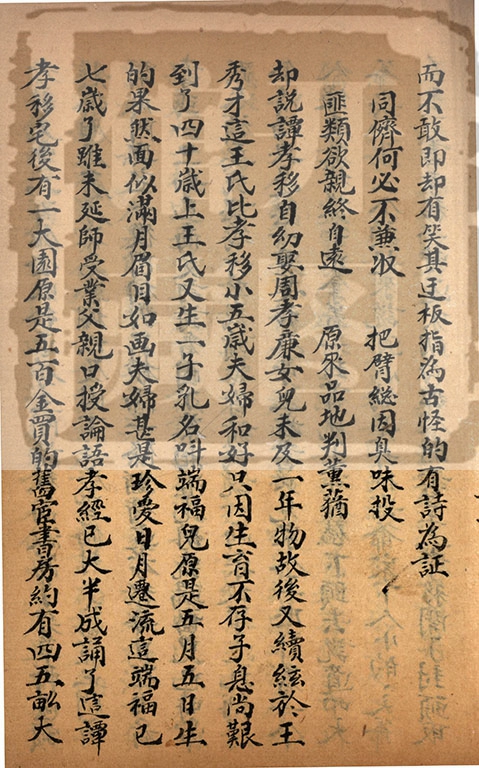 而不敢即却有笑其迂板指為古怪的有詩為証
同儕何必不兼收 把臂総因臭味投
匪類欲親終自遠 原來品地判薰蕕
却說譚孝移自幼娶周孝廉女兒未及一年物故後又續絃於王
秀才這王氏比孝移小五歲夫婦和好只因生育不存子息尚艱
到了四十歲上王氏又生一子乳名叫端福兒原是五月五日生
的果然面似滿月眉目如画夫婦甚是珍愛日月遷流這端福已
七歲了雖未延師受業父親口授論語孝經已大半成誦了這譚
孝移宅後有一大園原是五百金買的舊宦書房約有四五畝大